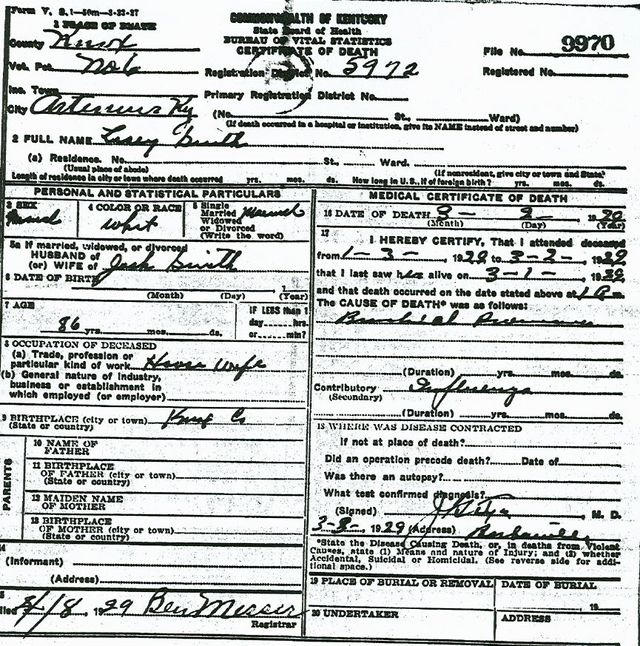 Form V. S. 1-50m-3-22-27
COMMONWEALTH OF KENTUCKY
State Board of Health
BUREAU OF VITAL STATISTICS
CERTIFICATE OF DEATH
1 PLACE OF DEATH
County Knox
File No. 9970
Vot. Pct. No 6
Registration District No. 5972
Registered No.
Inc. Town
Primary Registration District No.
City Artemus Ky
(No. St., Ward)
(If death occurred in a hospital or institution, give its NAME instead of street and number)
2 FULL NAME Casey Smith
(a) Residence. No. St., Ward.
(Usual place of abode) (If nonresident, give city or town and State)
Length of residence in city or town where death occurred yrs. mos. ds. How long in U.S., if of foreign birth? yrs. mos. ds.
PERSONAL AND STATISTICAL PARTICULARS
3 SEX
4 COLOR OR RACE
whit
5 Single
Married
Widowed
or Divorced
(Write the word)
5a If married, widowed, or divorced
HUSBAND of
(or) WIFE of Jack Smith
6 DATE OF BIRTH
(Month) (Day) (Year)
7 AGE
86 yrs. mos. ds.
IF LESS than 1
day hrs.
or min.?
8 OCCUPATION OF DECEASED
(a) Trade, profession or
particular kind of work House Wife
(b) General nature of industry,
business or establishment in
which employed (or employer)
9 BIRTHPLACE (city or town) Knox Co
(State or country)
PARENTS
10 NAME OF
FATHER
11 BIRTHPLACE
OF FATHER (city or town)
(State or country)
12 MAIDEN NAME
OF MOTHER
13 BIRTHPLACE
OF MOTHER (city or town)
(State or country)
14
(Informant)
(Address)
15
Filed 3/18, 1929 Ben Messer
Registrar
MEDICAL CERTIFICATE OF DEATH
16 DATE OF DEATH 3 - 2 - 19
(Month) (Day) (Year)
17
I HEREBY CERTIFY, That I attended deceased
from 1-3-, 1929 to 3-2-, 1929
that I last saw her alive on 3-1-, 1929
and that death occurred on the date stated above at m.
The CAUSE OF DEATH* was as follows:
Bronchial Pneumonia
(Duration) yrs. mos. ds.
Contributory Influenza
(Secondary)
(Duration) yrs. mos. ds.
18 WHERE WAS DISEASE CONTRACTED
if not at place of death?
Did an operation precede death? Date of
Was there an autopsy?
What test confirmed diagnosis?
(Signed) M. D.
1929 (Address) Barbourville
*State the Disease Causing Death, or, in deaths from Violent
Causes, state (1) Means and nature of Injury; and (2) whether
Accidental, Suicidal or Homicidal. (See reverse side for addi-
tional space.)
19 PLACE OF BURIAL OR REMOVAL
DATE OF BURIAL
19
20 UNDERTAKER
ADDRESS